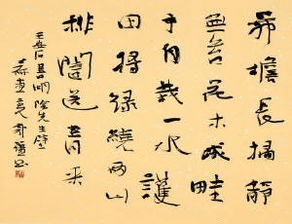 茅檐長掃靜
無苔花木成畦
手自栽一水護
田將綠繞兩山
排闥送青來
王安石書湖陰先生壁